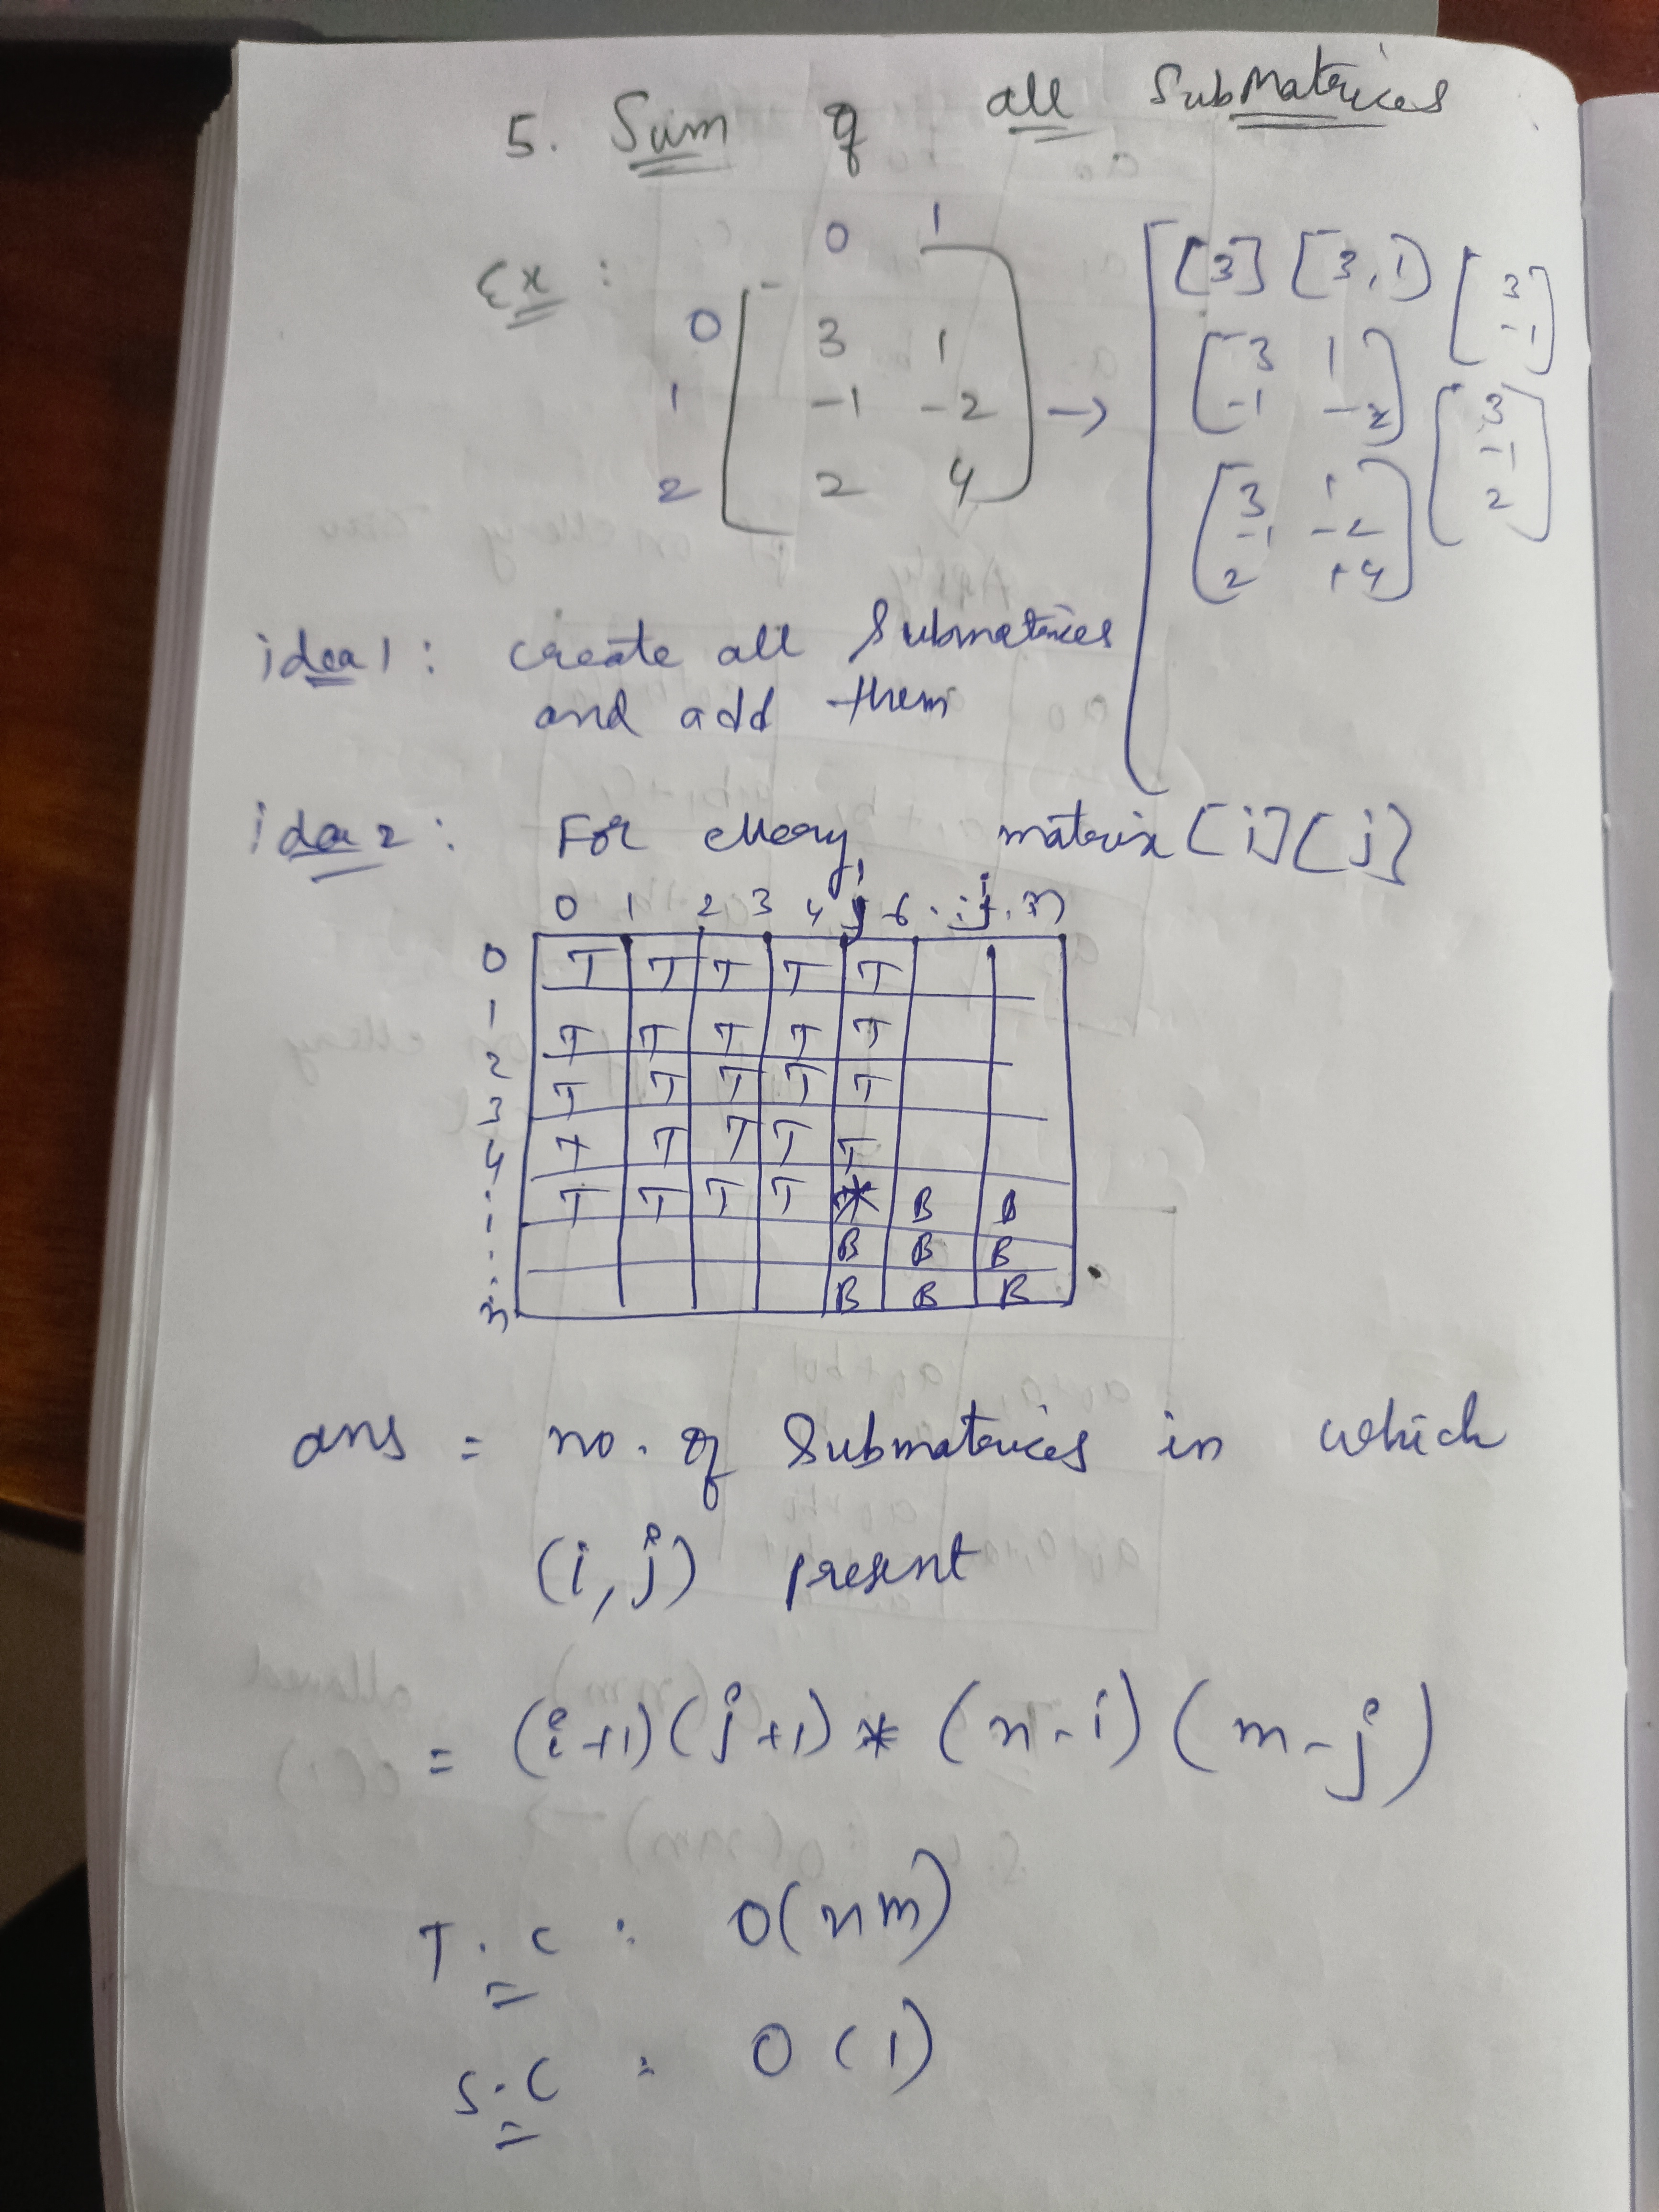 5. Sum of all SubMatrices
Ex :
0 1
0 3 1
1 -1 -2
2 2 4
→
[3] [3,1) [3 -1]
[3 1
-1 -2]
[3
-1
2]
[3 1
-1 -2
2 +4]
idea 1 : create all Submatrices
and add them
idea 2 : For every, matrix [i][j]
0 1 2 3 4 j 6 . . j . m
0 T T T T T
1 T T T T T
2 T T T T T
3 T T T T T
4 T T T T * B B
i B B B
: B B B
n
ans = no. of Submatrices in which
(i, j) present
= (i+1)(j+1) * (n-i) (m-j)
T.C : O(nm)
S.C : O(1)